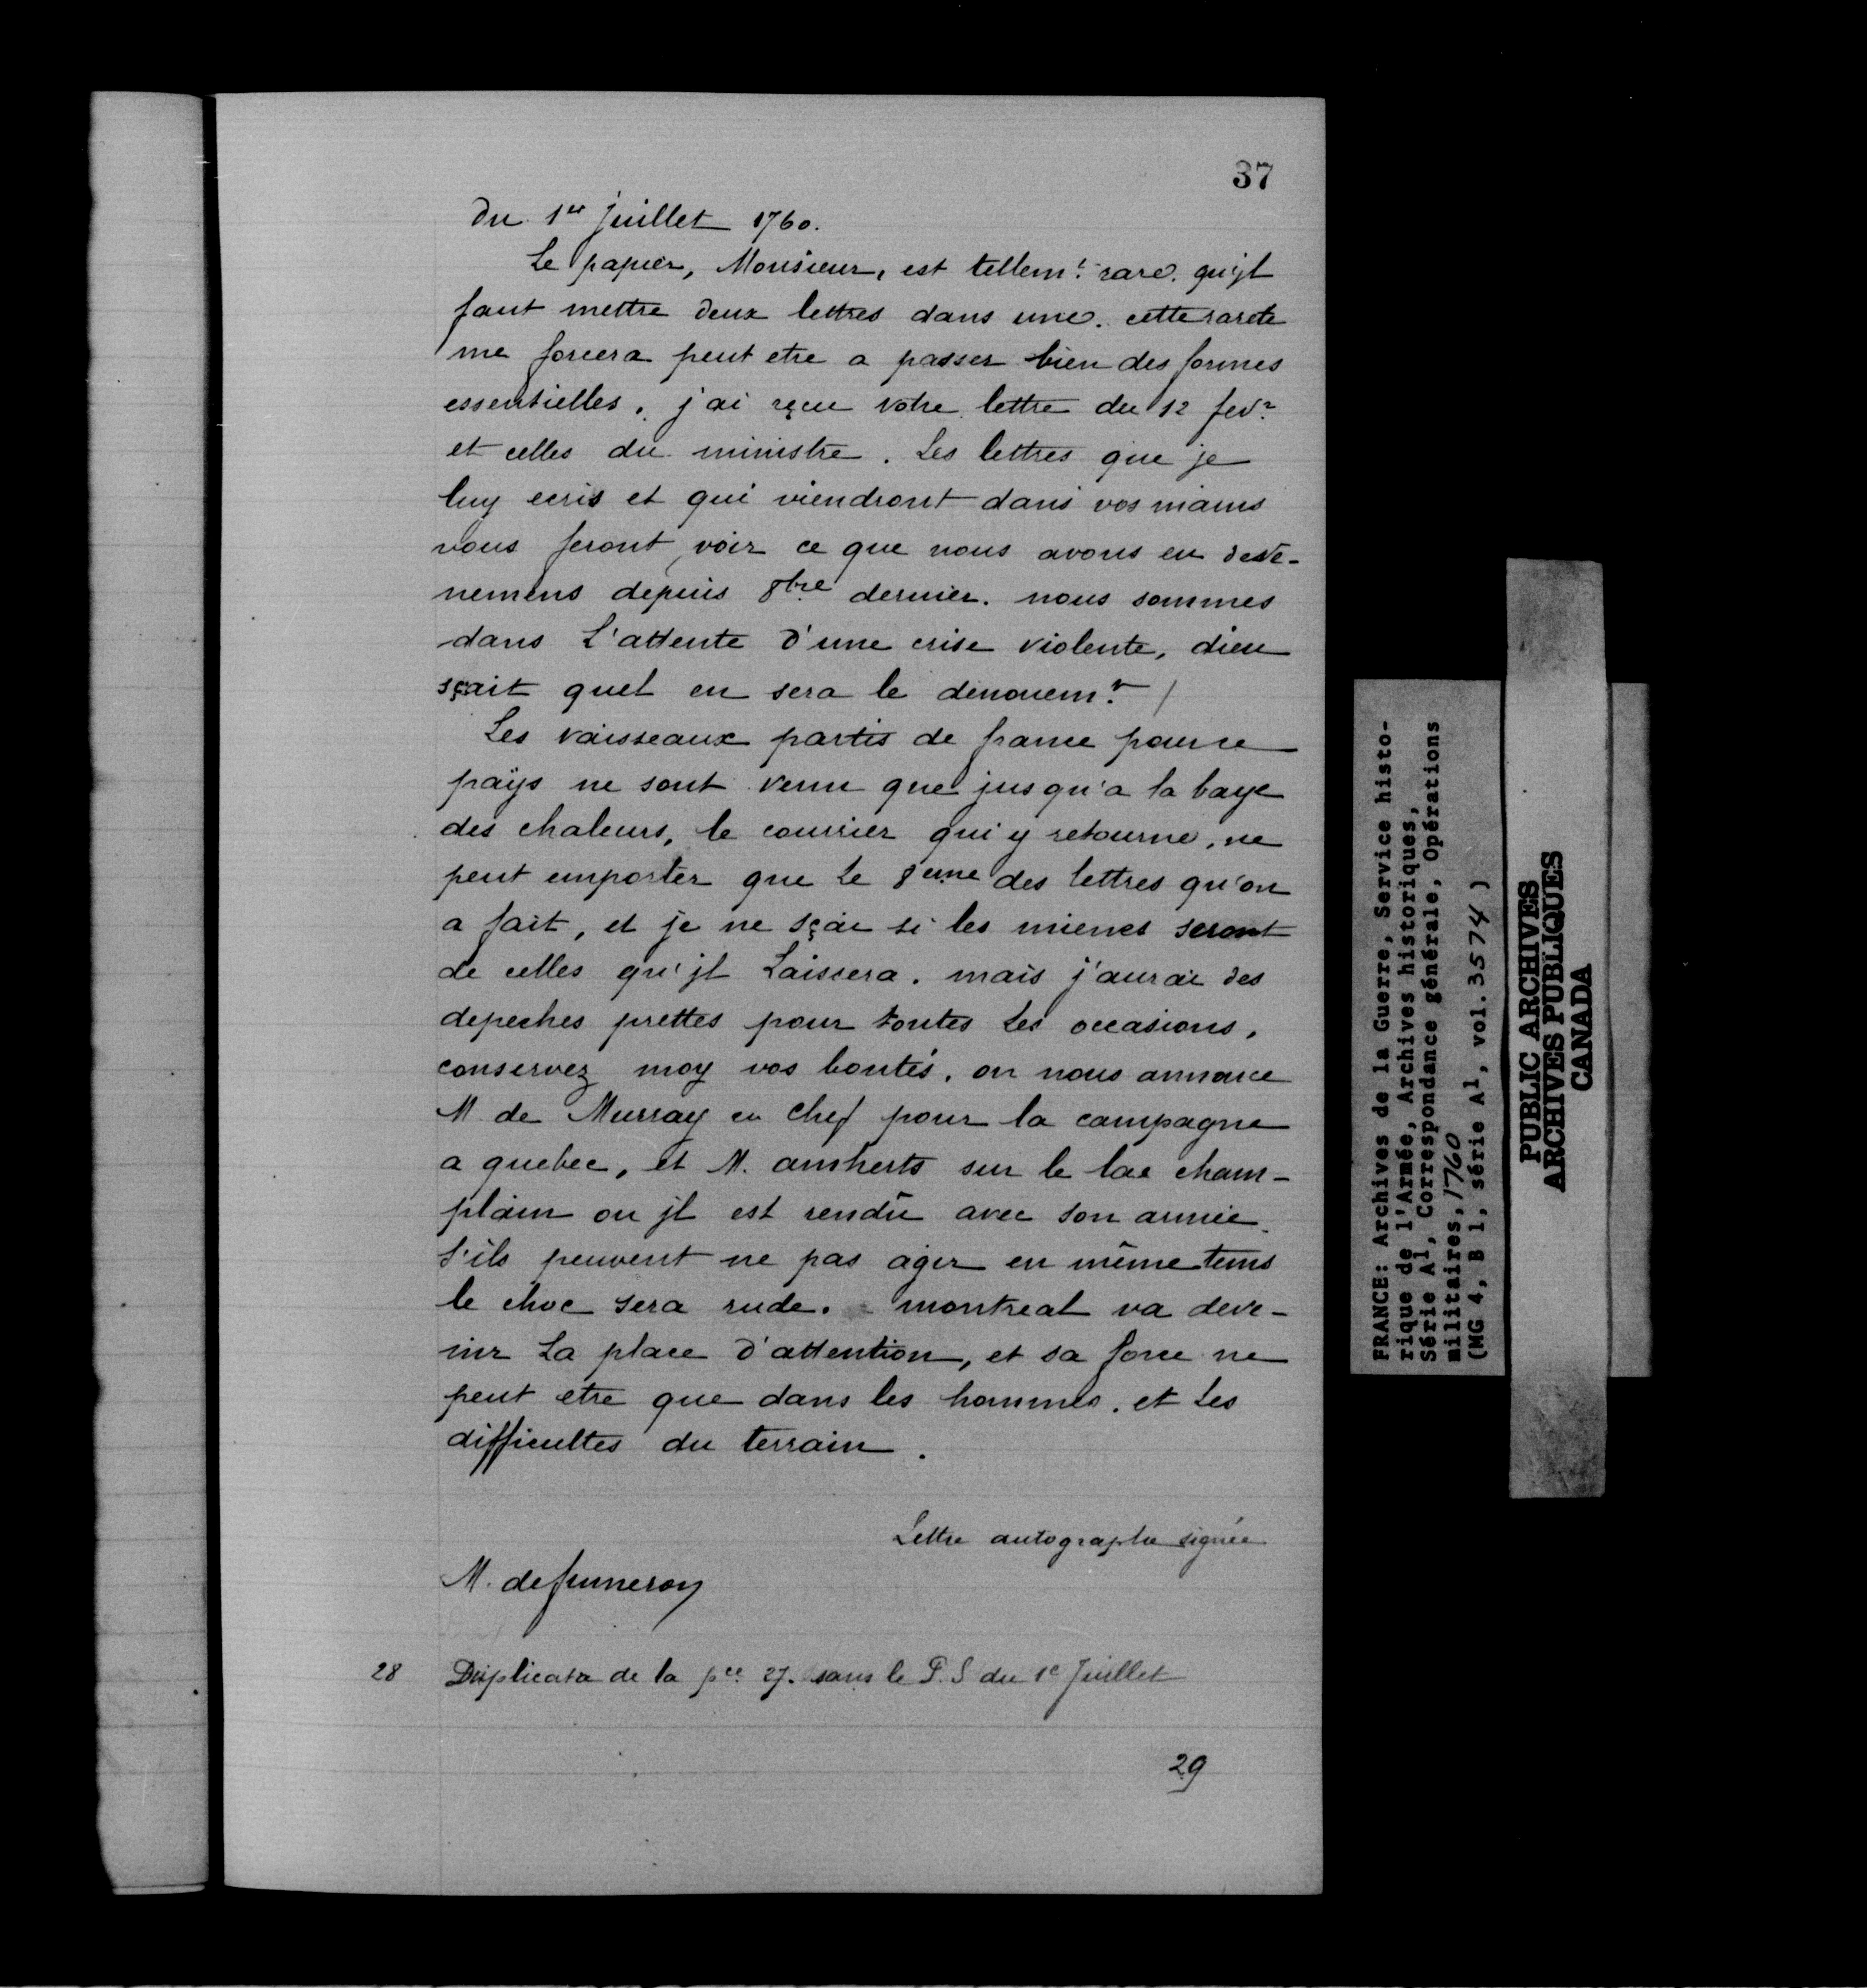 37
du 1er juillet 1760.
Le papier, Monsieur, est tellemt. rare. qu'jl
faut mettre deux lettres dans une. cette rareté
me forcera peut etre a passer bien des formes
essentielles. j'ai reçu votre lettre du 12 fevr.
et celles du ministre. Les lettres que je
luy ecris et qui viendront dans vos mains
vous feront voir ce que nous avons eu deve-
nemens depuis 8bre dernier. nous sommes
dans L'attente d'une crise violente, dieu
sçait quel en sera le denouemt. /
Les vaisseaux partis de france pour ce
païs ne sont venu que jusqu'a la baye
des chaleurs, le courrier qui y retourne, ne
peut emporter que le 8eme des lettres qu'on
a fait, et je ne sçai si les mienes seront
de celles qu'jl Laissera. mais j'aurai des
depeches prettes pour toutes les occasions,
conservez moy vos bontés. on nous annonce
M. de Murray en chef pour la campagne
a quebec, et M. amherts sur le lac cham-
plain ou jl est rendu avec son armée.
S'ils peuvent ne pas agir en même tems
le choc sera rude. montreal va deve-
nir La place d'attention, et sa force ne
peut etre que dans les hommes. et les
difficultes du terrain.
Lettre autographe signée
M. de fumeron
28 Duplicata de la pce. 27. sans le P.S du 1e Juillet
29
FRANCE: Archives de la Guerre, Service histo-
rique de l'Armée, Archives historiques,
Série A1, Correspondance générale, Opérations
militaires, 1760
(MG 4, B 1, série A1, vol. 3574)
PUBLIC ARCHIVES
ARCHIVES PUBLIQUES
CANADA